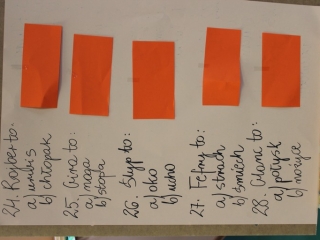 24. Rojber to:
a) urwis
b) chłopak
25. Gira to:
a) noga
b) stopa
26. Ślyp to:
a) oko
b) ucho
27. Fefry to:
a) strach
b) śmiech
28. Glanc to:
a) połysk
b) nożyce